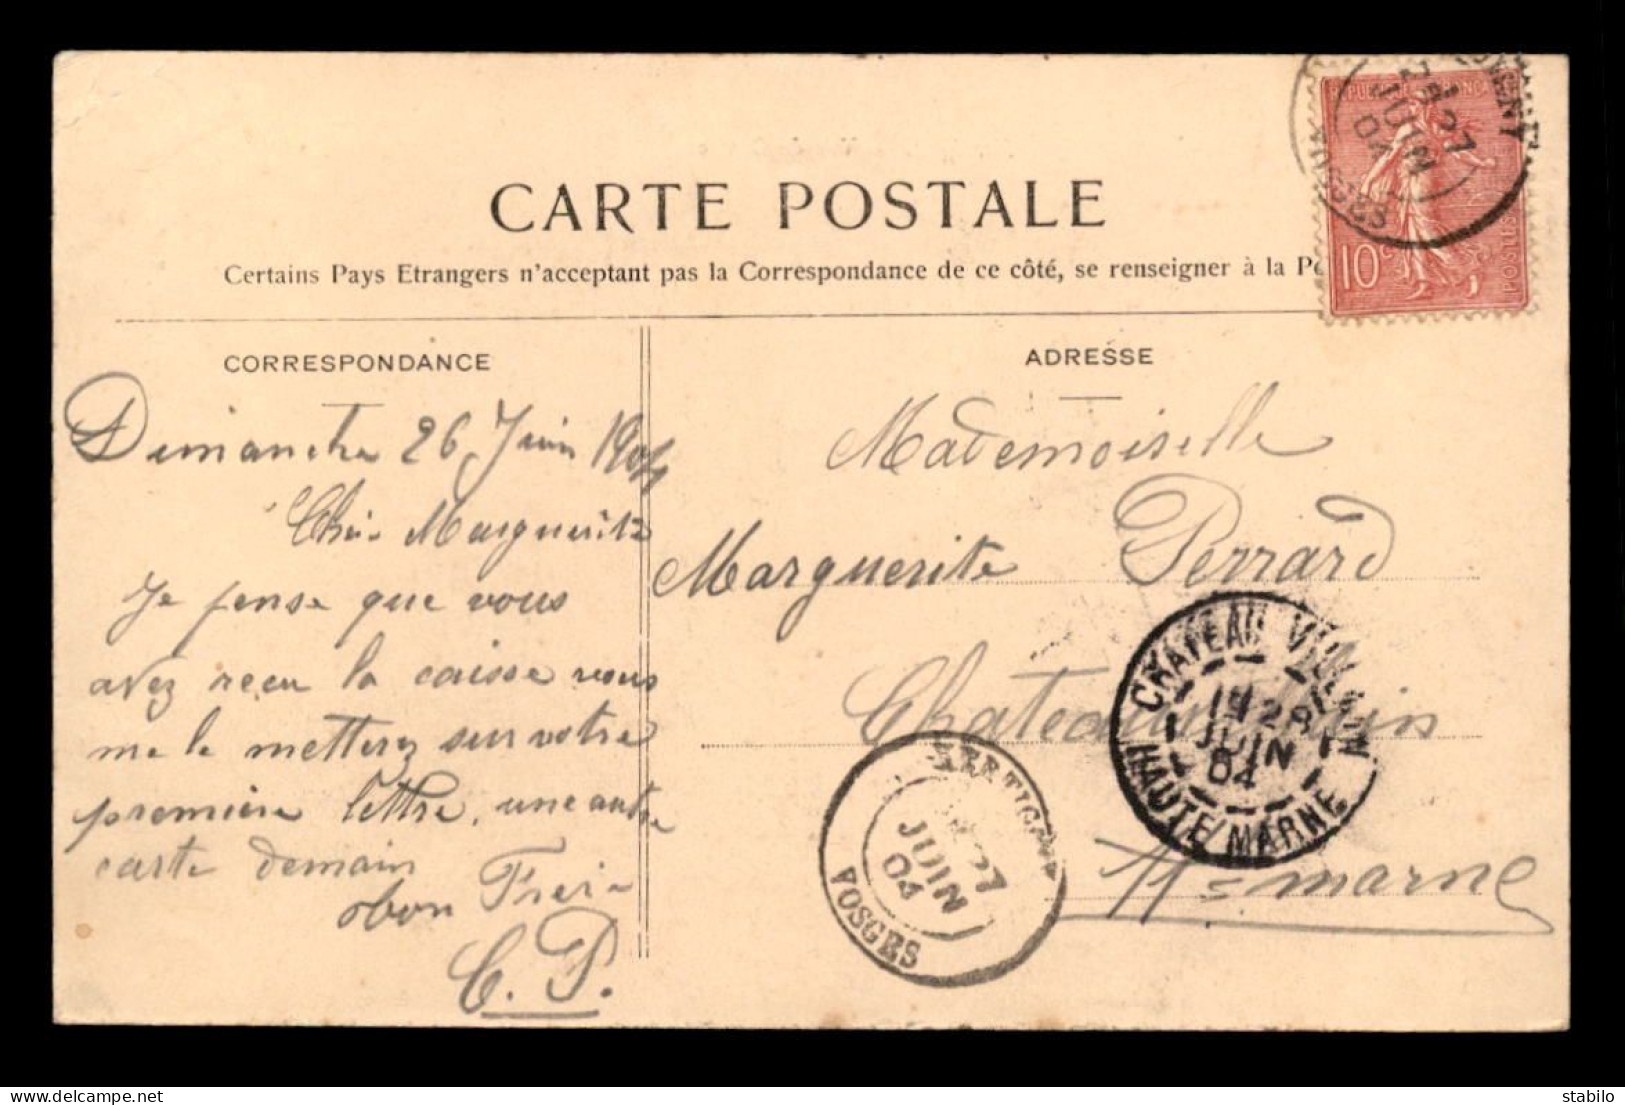 CARTE POSTALE
Certains Pays Etrangers n'acceptant pas la Correspondance de ce côté, se renseigner à la
CORRESPONDANCE
Dimanche 26 Juin 1904
Marguerite
Je pense que vous
avez recu la caisse vous
me le metterez sur votre
première lettre, une autre
carte demain
bon
C. P.
ADRESSE
Mademoiselle
Marguerite Perrard
Chateauvillain
Hte marne
10c
POSTES
27
JUIN
04
VOSGES
27
JUIN
04
VOSGES
CHATEAU VILLAIN
28
JUIN
04
HAUTE MARNE
delcampe.net
stabilo